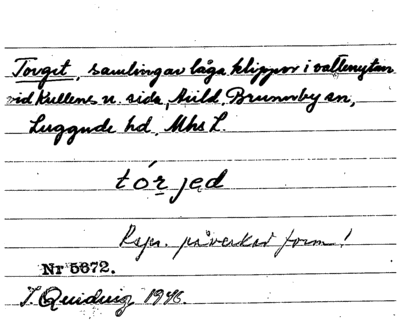 Torget, samling av låga klippor i vattenytan
vid Kullens n. sida, Arild, Brunnby sn,
Luggude hd, Mhs L.
tórjed
Rspr. påverkad form!
Nr 5372.
I. Quidwig 1946.